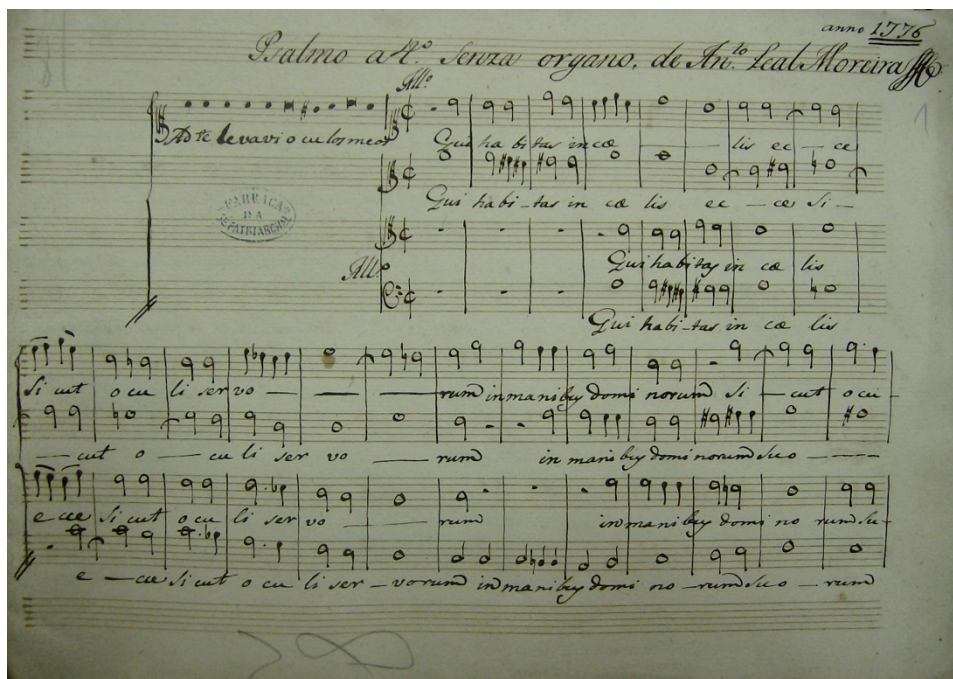 anno 1776
Psalmo a 4.º Senza organo, de An.to Leal Moreira
All.º
Ad te levavi oculos meos
Qui habitas in cæ — — lis ec — ce
Qui habi-tas in cæ lis ec — ce Si —
FABRICA
DA
SÉ PATRIARCHAL
Qui habitas in cæ lis
All.º
Qui habi-tas in cæ lis
Si cut ocu li ser vo — — — rum in manibus domi norum Si — cut ocu -
— cut o — cu li ser vo — rum in manibus domi norum suo —
ecce Si cut ocu li ser vo — rum in manibus domi no rum su-
e — cce Si cut o cu li ser — vorum in manibus domi no — rum suo — rum
1